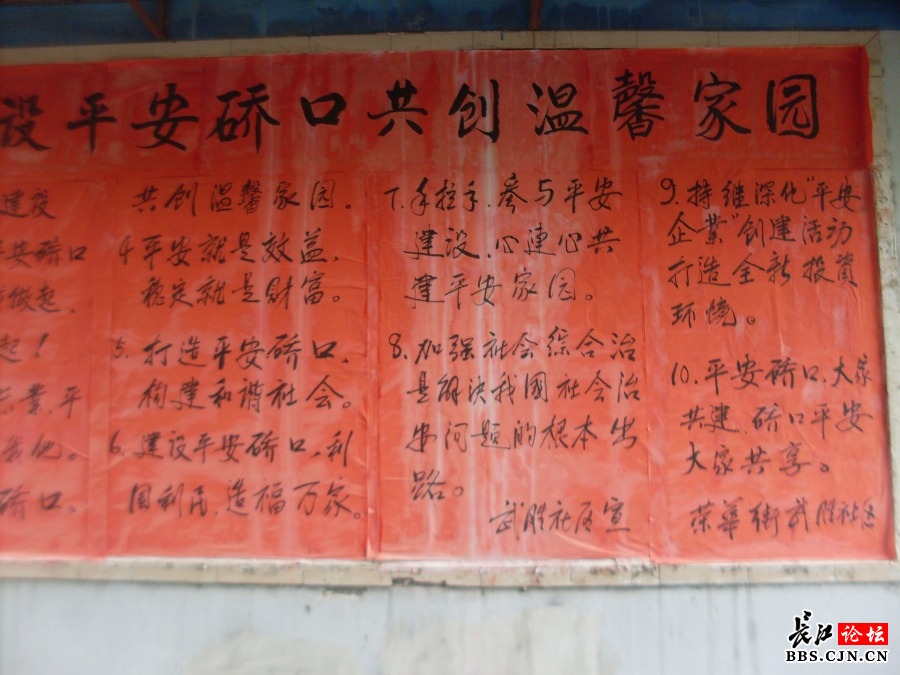 设平安硚口共创温馨家园
建设
平安硚口
做起,
起!
业,平
化。
硚口。
共创温馨家园.
4平安就是效益,
稳定就是财富。
5.打造平安硚口,
构建和谐社会。
6.建设平安硚口,利
国利民,造福万家.
7.手拉手.参与平安
建设,心連心共
建平安家园。
8.加强社会综合治
是解决我國社会治
安问题的根本出
路。
武胜社区宣
9.持继深化"平安
企業"创建活动
打造全新投資
环境。
10.平安硚口,大家
共建,硚口平安
大家共享。
荣華街武胜社区
长江论坛
BBS.CJN.CN